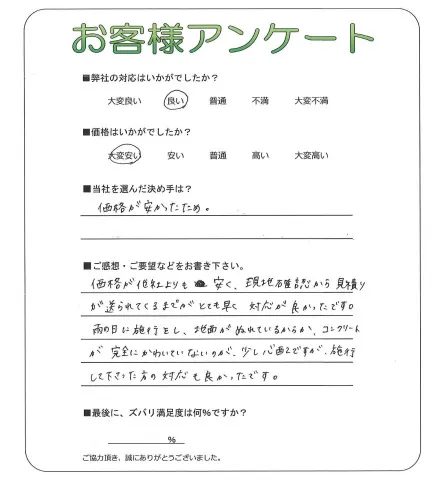 お客様アンケート
■弊社の対応はいかがでしたか？
大変良い 良い 普通 不満 大変不満
■価格はいかがでしたか？
大変安い 安い 普通 高い 大変高い
■当社を選んだ決め手は？
価格が安かったため。
■ご感想・ご要望などをお書き下さい。
価格が他社よりも 安く、現地確認から見積り
が送られてくるまでがとても早く対応が良かったです。
雨の日に施行をし、地面がぬれているからか、コンクリート
が完全にかわいていないのが、少し心配ですが、施行
して下さった方の対応も良かったです。
■最後に、ズバリ満足度は何％ですか？
％
ご協力頂き、誠にありがとうございました。